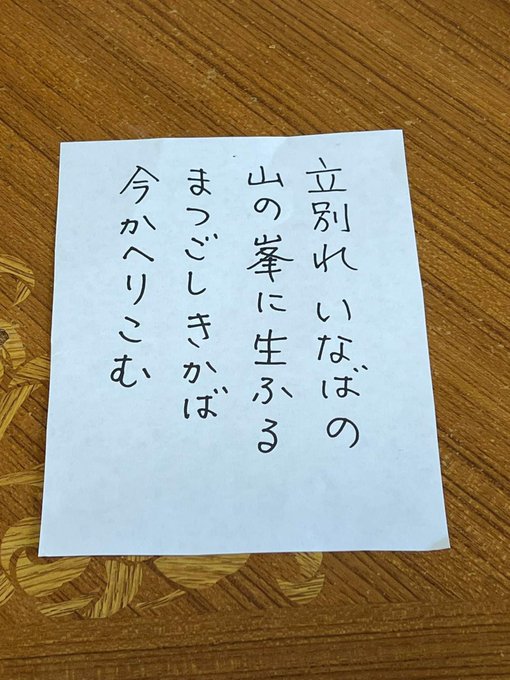 立別れ いなばの
山の峯に生ふる
まつごしきかば
今かへりこむ